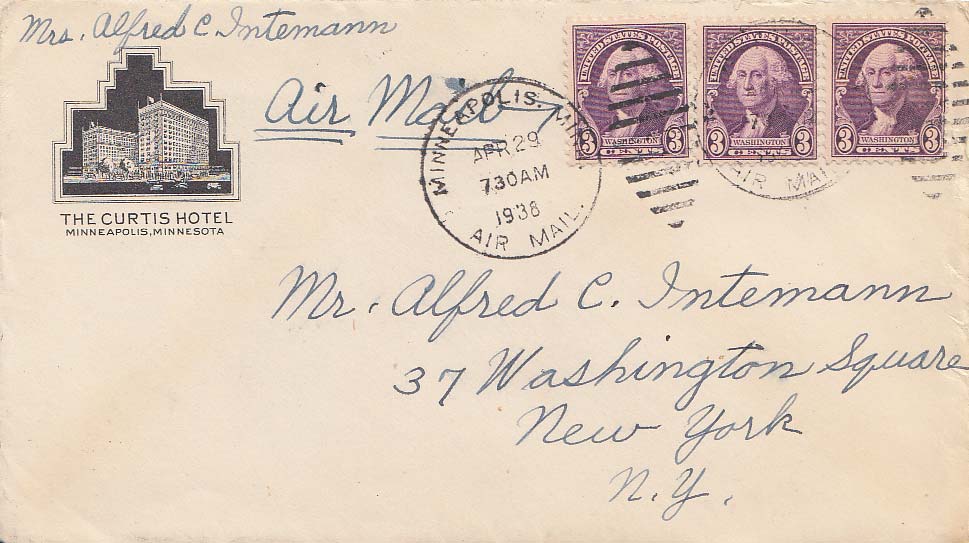 Mrs. Alfred C. Intemann
Air Mail
THE CURTIS HOTEL
MINNEAPOLIS, MINNESOTA
MINNEAPOLIS. MINN.
APR 29
7.30 AM
1938
AIR MAIL.
UNITED STATES POSTAGE
3 WASHINGTON 3
UNITED STATES POSTAGE
3 WASHINGTON 3
UNITED STATES POSTAGE
3 WASHINGTON 3
AIR MAIL
Mr. Alfred C. Intemann
37 Washington Square
New York
N.Y.